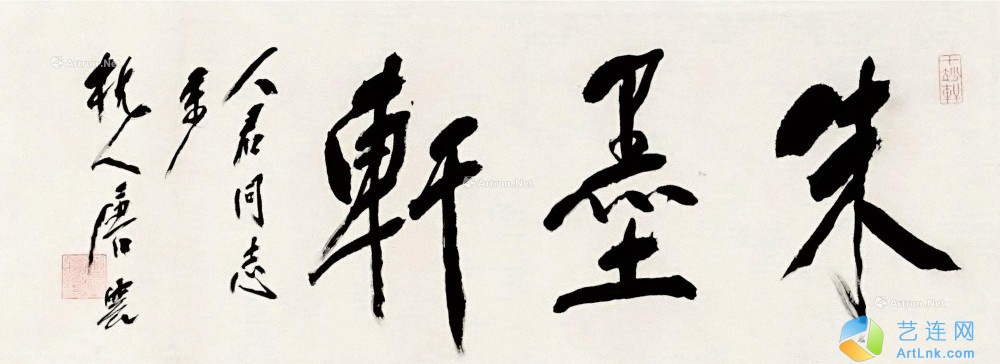 朱墨軒
人君同志
杭人唐雲
Artron.Net
Artron.Net
Artron.Net
艺连网
ArtLnk.com